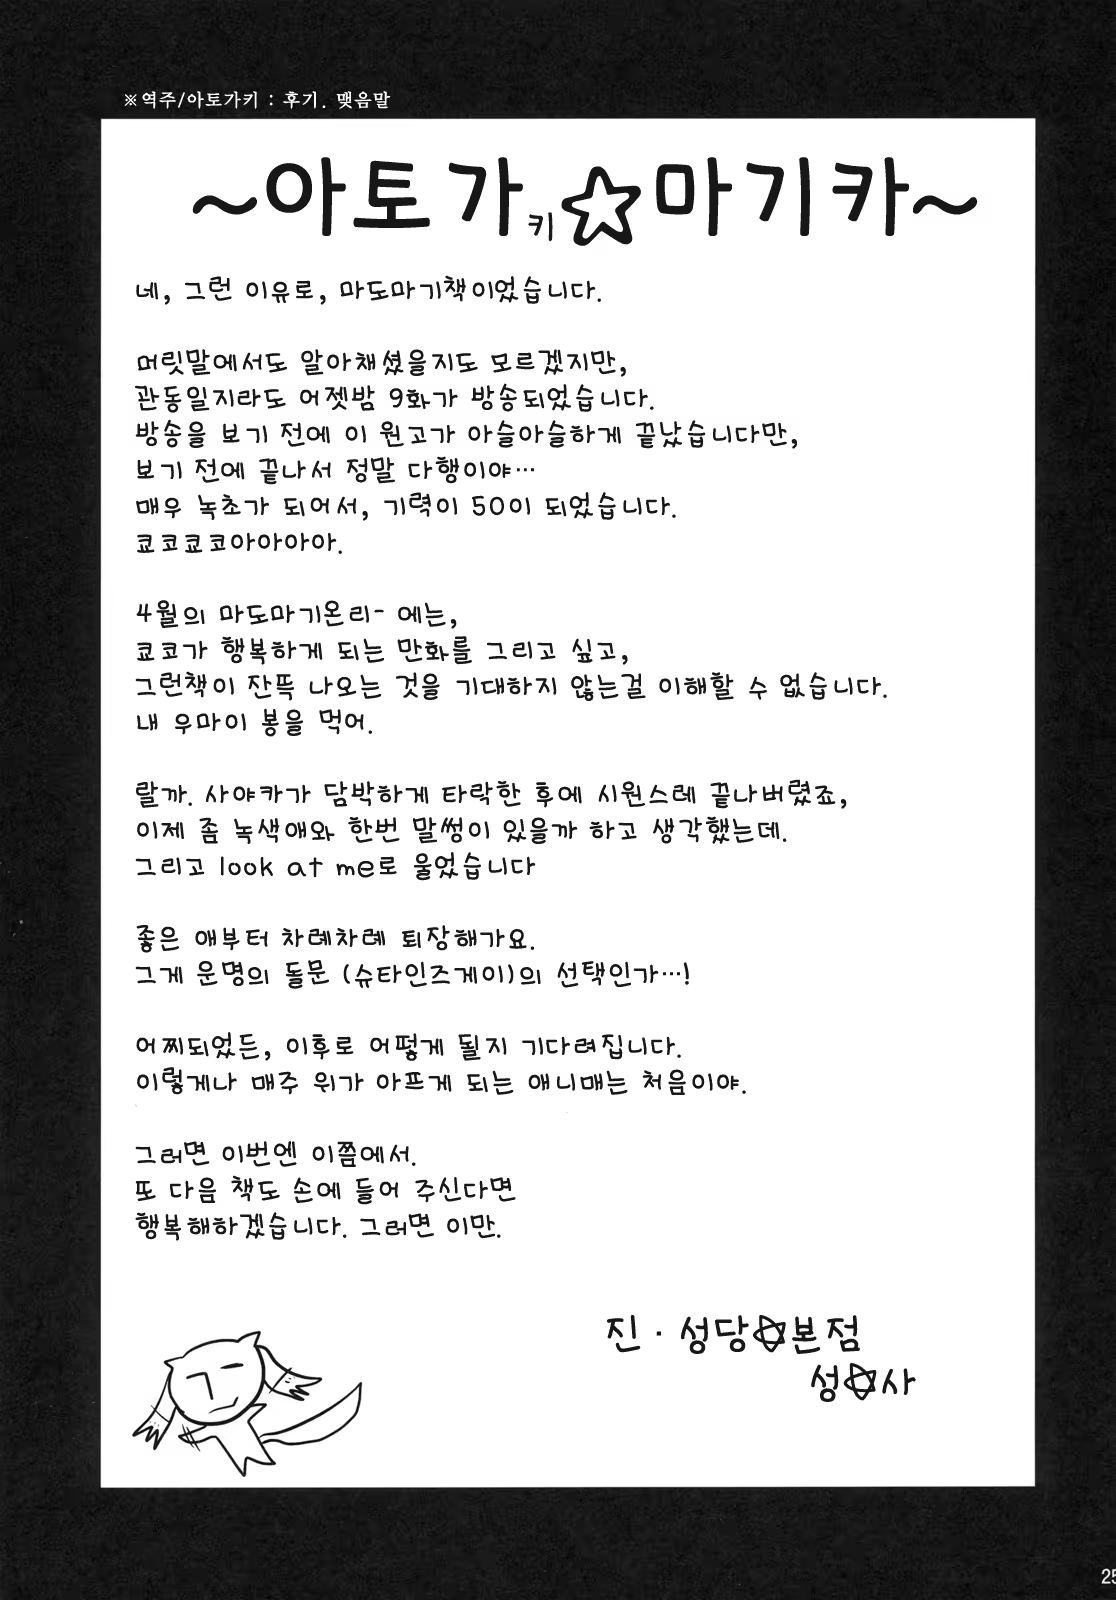 ※역주/아토가키 : 후기. 맺음말
~아토가키☆마기카~
네, 그런 이유로, 마도마기책이었습니다.
머릿말에서도 알아채셨을지도 모르겠지만,
관동일지라도 어젯밤 9화가 방송되었습니다.
방송을 보기 전에 이 원고가 아슬아슬하게 끝났습니다만,
보기 전에 끝나서 정말 다행이야…
매우 녹초가 되어서, 기력이 50이 되었습니다.
쿄코쿄코아아아아.
4월의 마도마기온리- 에는,
쿄코가 행복하게 되는 만화를 그리고 싶고,
그런책이 잔뜩 나오는 것을 기대하지 않는걸 이해할 수 없습니다.
내 우마이 봉을 먹어.
랄까. 사야카가 담박하게 타락한 후에 시원스레 끝나버렸죠,
이제 좀 녹색애와 한번 말썽이 있을까 하고 생각했는데.
그리고 look at me로 울었습니다
좋은 애부터 차례차례 퇴장해가요.
그게 운명의 돌문 (슈타인즈게이)의 선택인가…!
어찌되었든, 이후로 어떻게 될지 기다려집니다.
이렇게나 매주 위가 아프게 되는 애니매는 처음이야.
그러면 이번엔 이쯤에서.
또 다음 책도 손에 들어 주신다면
행복해하겠습니다. 그러면 이만.
진 · 성당☆본점
성☆사
25